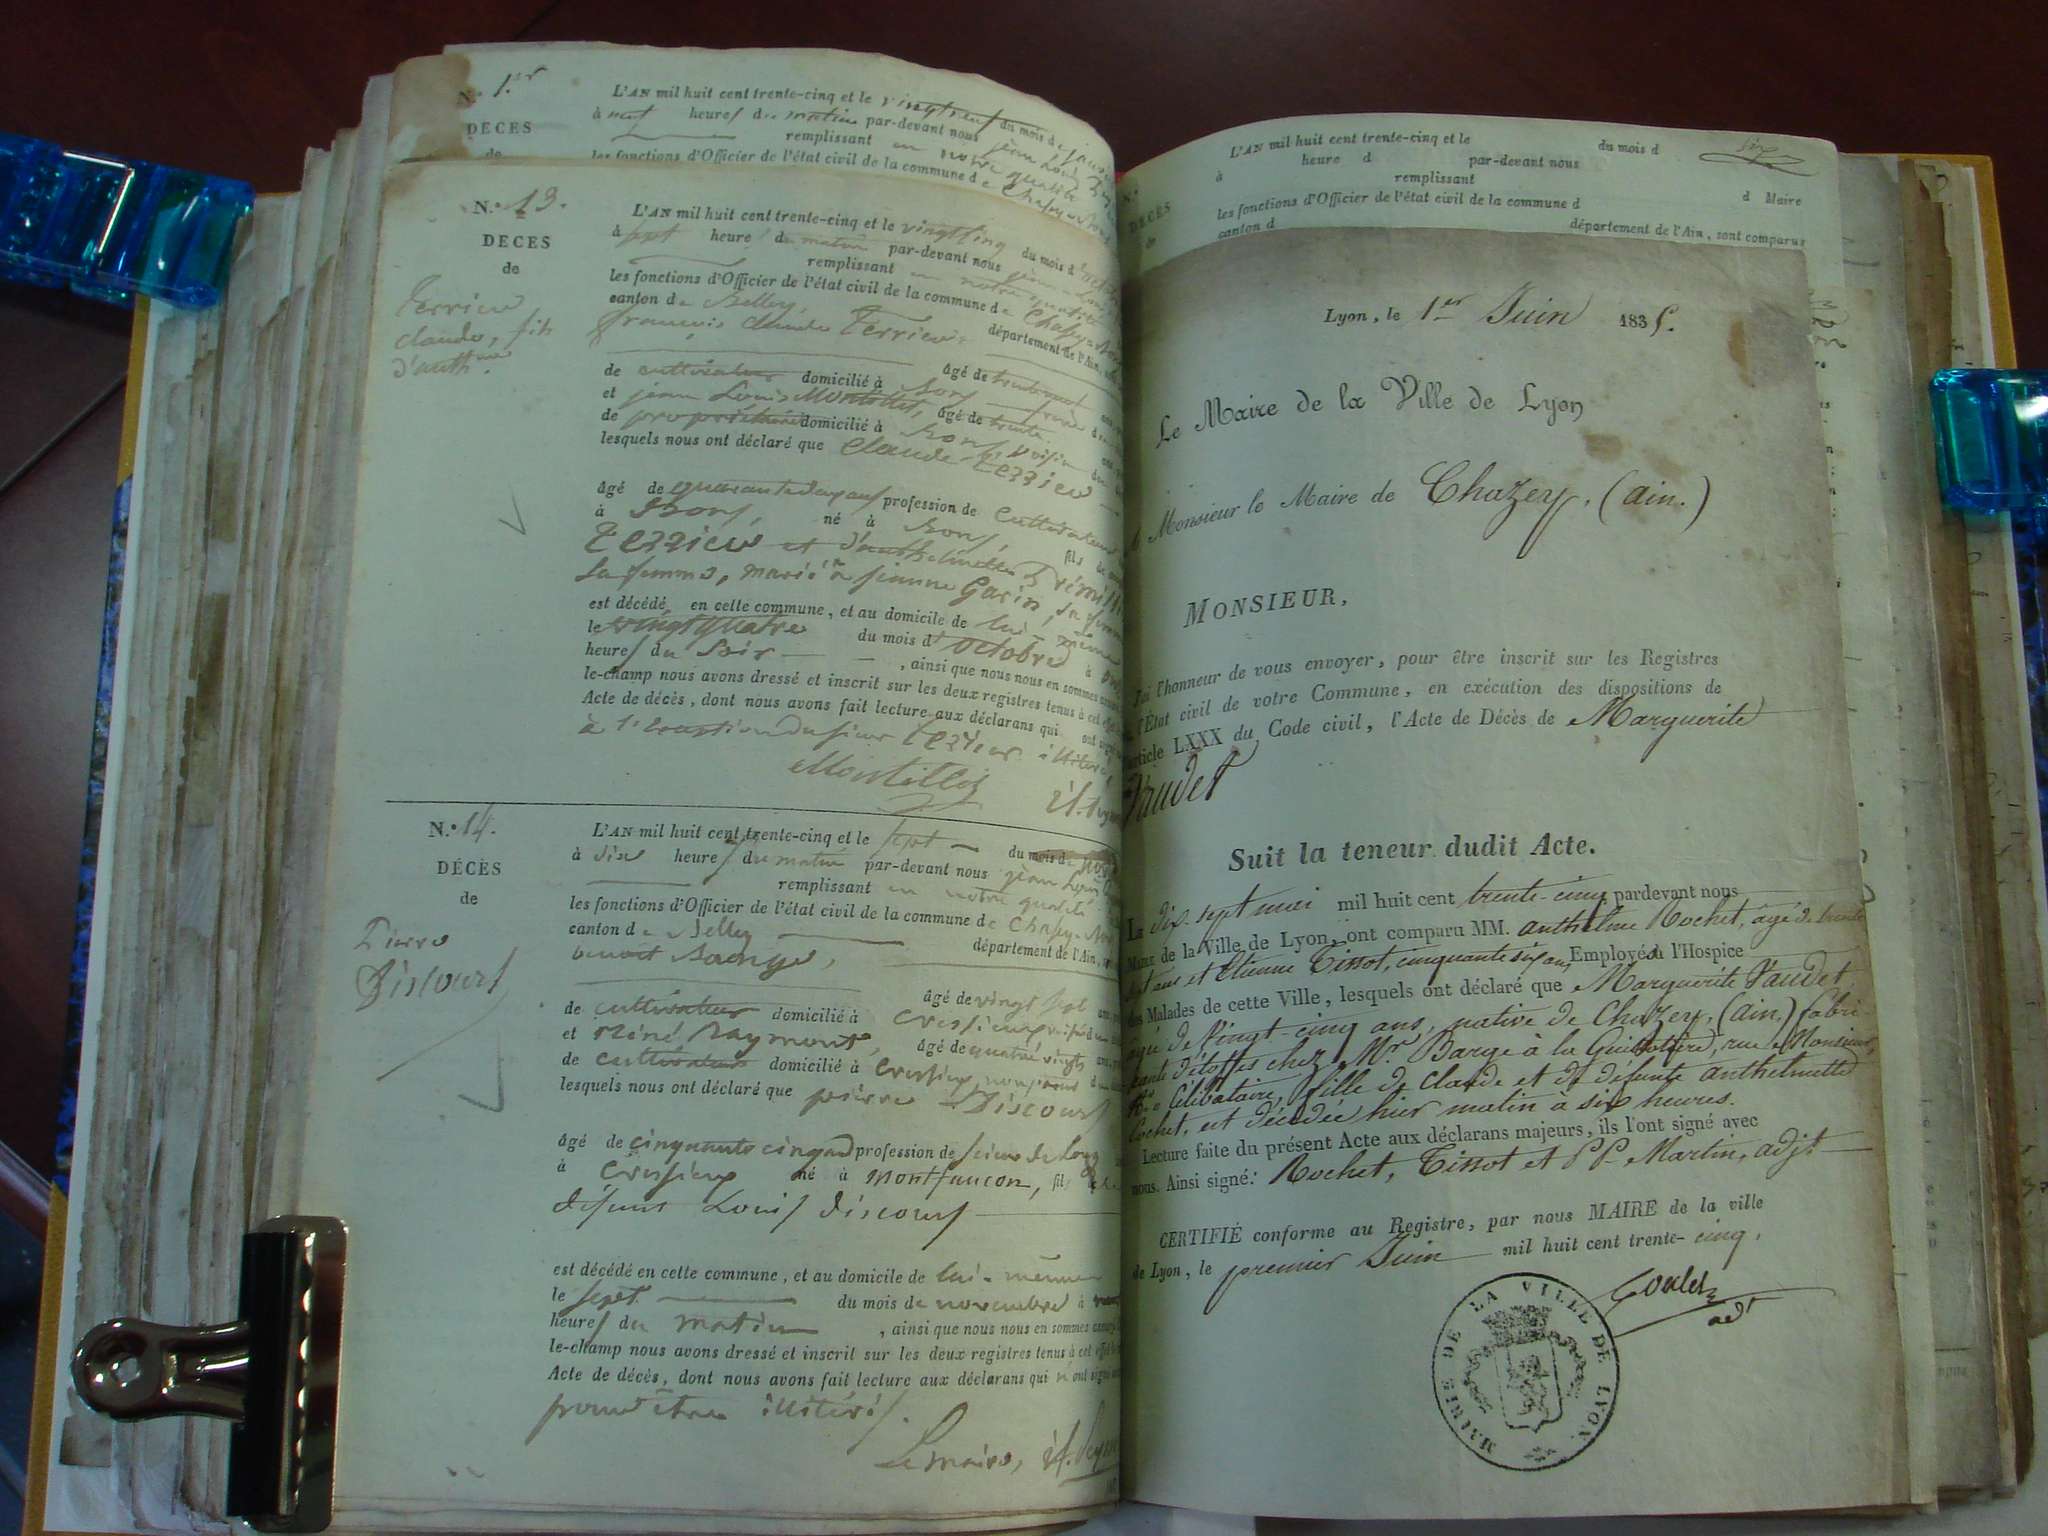 N.° 1.er
L'AN mil huit cent trente-cinq et le vingt neuf du mois de
à neuf heures du matin par-devant nous jean Louis
remplissant en notre qualité
les fonctions d'Officier de l'état civil de la commune de Chazey
DECES
de
N.° 13.
DECES
de
Terrieu
claude, fils
d'anth.me
L'AN mil huit cent trente-cinq et le vingt cinq du mois d'
à sept heures du matin par-devant nous jean Louis
remplissant en notre qualité
les fonctions d'Officier de l'état civil de la commune de Chazey
canton de Belley département de l'Ain,
françois claude Terrieu
âgé de
de cultivateur domicilié à Bons
et jean Louis Montillet, âgé de trente
de propriétaire domicilié à Bons, voisin
lesquels nous ont déclaré que Claude Terrieu
âgé de quarante deux ans profession de cultivateur
à Bons, né à Bons, fils de
Terrieu et d'anthelmette
sa femme, marié à jeanne Garin, sa femme
est décédé en cette commune, et au domicile de lui-même
le vingt quatre du mois d'octobre à
heures du soir , ainsi que nous nous en sommes
le-champ nous avons dressé et inscrit sur les deux registres tenus à cet
Acte de décès, dont nous avons fait lecture aux déclarans qui ont signé
à l'exception du sieur Terrieu illitéré
Montillet
N.° 14.
DÉCÈS
de
Pierre
Discours
L'AN mil huit cent trente-cinq et le sept du mois de
à dix heures du matin par-devant nous jean Louis
remplissant en notre qualité
les fonctions d'Officier de l'état civil de la commune de Chazey-Bons
canton de Belley département de l'Ain,
benoit
âgé de vingt sept
de cultivateur domicilié à Cressieux voisin
et Réné Raymond, âgé de quatre vingts
de cultivateur domicilié à Cressieux
lesquels nous ont déclaré que pierre Discours
âgé de cinquante cinq ans profession de scieur de Long
à Cressieux né à Montfaucon, fils de
défunt Louis Discours
est décédé en cette commune, et au domicile de lui-même
le sept du mois de novembre à
heures du matin , ainsi que nous nous en sommes
le-champ nous avons dressé et inscrit sur les deux registres tenus à cet effet
Acte de décès, dont nous avons fait lecture aux déclarans qui n'ont signé
pour être illitérés.
Le maire,
L'AN mil huit cent trente-cinq et le du mois d
à heure d par-devant nous
remplissant d Maire
les fonctions d'Officier de l'état civil de la commune d
canton d département de l'Ain, sont comparus
six
DECES
de
Lyon, le 1er Juin 1835.
Le Maire de la Ville de Lyon
A Monsieur le Maire de Chazey, (ain.)
MONSIEUR,
J'ai l'honneur de vous envoyer, pour être inscrit sur les Registres
l'État civil de votre Commune, en exécution des dispositions de
article LXXX du Code civil, l'Acte de Décès de Marguerite
Vaudet
Suit la teneur dudit Acte.
Le dix-sept mai mil huit cent trente-cinq pardevant nous
Maire de la Ville de Lyon, ont comparu MM. anthelme Rochet, âgé de trente
sept ans et Etienne Tissot, cinquante six ans, Employés à l'Hospice
des Malades de cette Ville, lesquels ont déclaré que Marguerite Vaudet,
agée de Vingt-cinq ans, native de Chazey, (ain.) fabri-
cante d'étoffes chez Mr Barge à la Guillotière, rue Monsieur,
Célibataire, fille de Claude et de défunte anthelmette
Rochet, est décédée hier matin à six heures.
Lecture faite du présent Acte aux déclarans majeurs, ils l'ont signé avec
nous. Ainsi signé: Rochet, Tissot et P.P. Martin, adjt
CERTIFIÉ conforme au Registre, par nous MAIRE de la ville
de Lyon, le premier Juin mil huit cent trente-cinq.
adt
MAIRIE DE LA VILLE DE LYON.